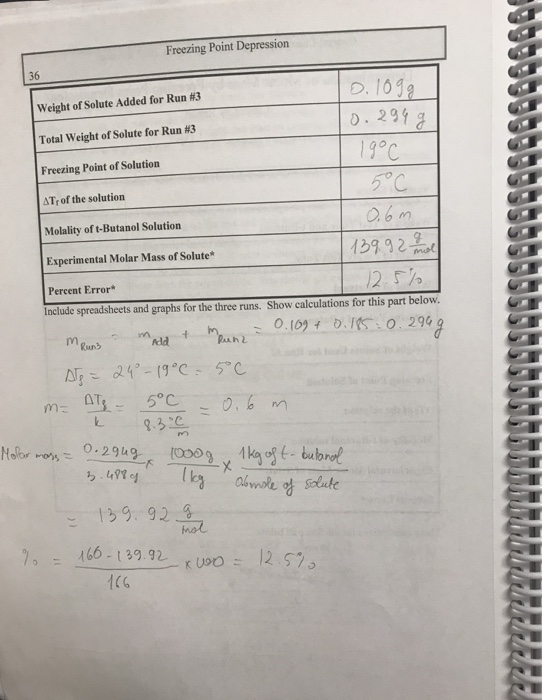 Freezing Point Depression
36
Weight of Solute Added for Run #3 0.109g
Total Weight of Solute for Run #3 0.294 g
Freezing Point of Solution 19°C
ΔTf of the solution 5°C
Molality of t-Butanol Solution 0.6 m
Experimental Molar Mass of Solute* 139.92 g/mol
Percent Error* 12.5%
Include spreadsheets and graphs for the three runs. Show calculations for this part below.
m Run3 = m Add + m Run2 = 0.109 + 0.185 = 0.294 g
ΔTf = 24° - 19°C = 5°C
m = ΔTf / k = 5°C / 8.3 °C/m = 0.6 m
Molar mass = 0.294g / 3.498g × 1000g / 1kg × 1kg of t-butanol / 0.6mole of solute
= 139.92 g/mol
% = 166-139.92 / 166 × 100 = 12.5%